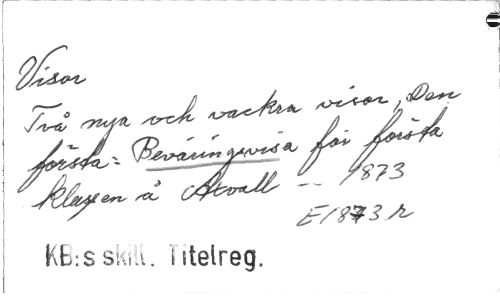 Visor
Två nya och vackra visor, Den
första: Beväringsvisa för första
klassen å Axvall -- 1873
E1873 r
KB:s skill. Titelreg.